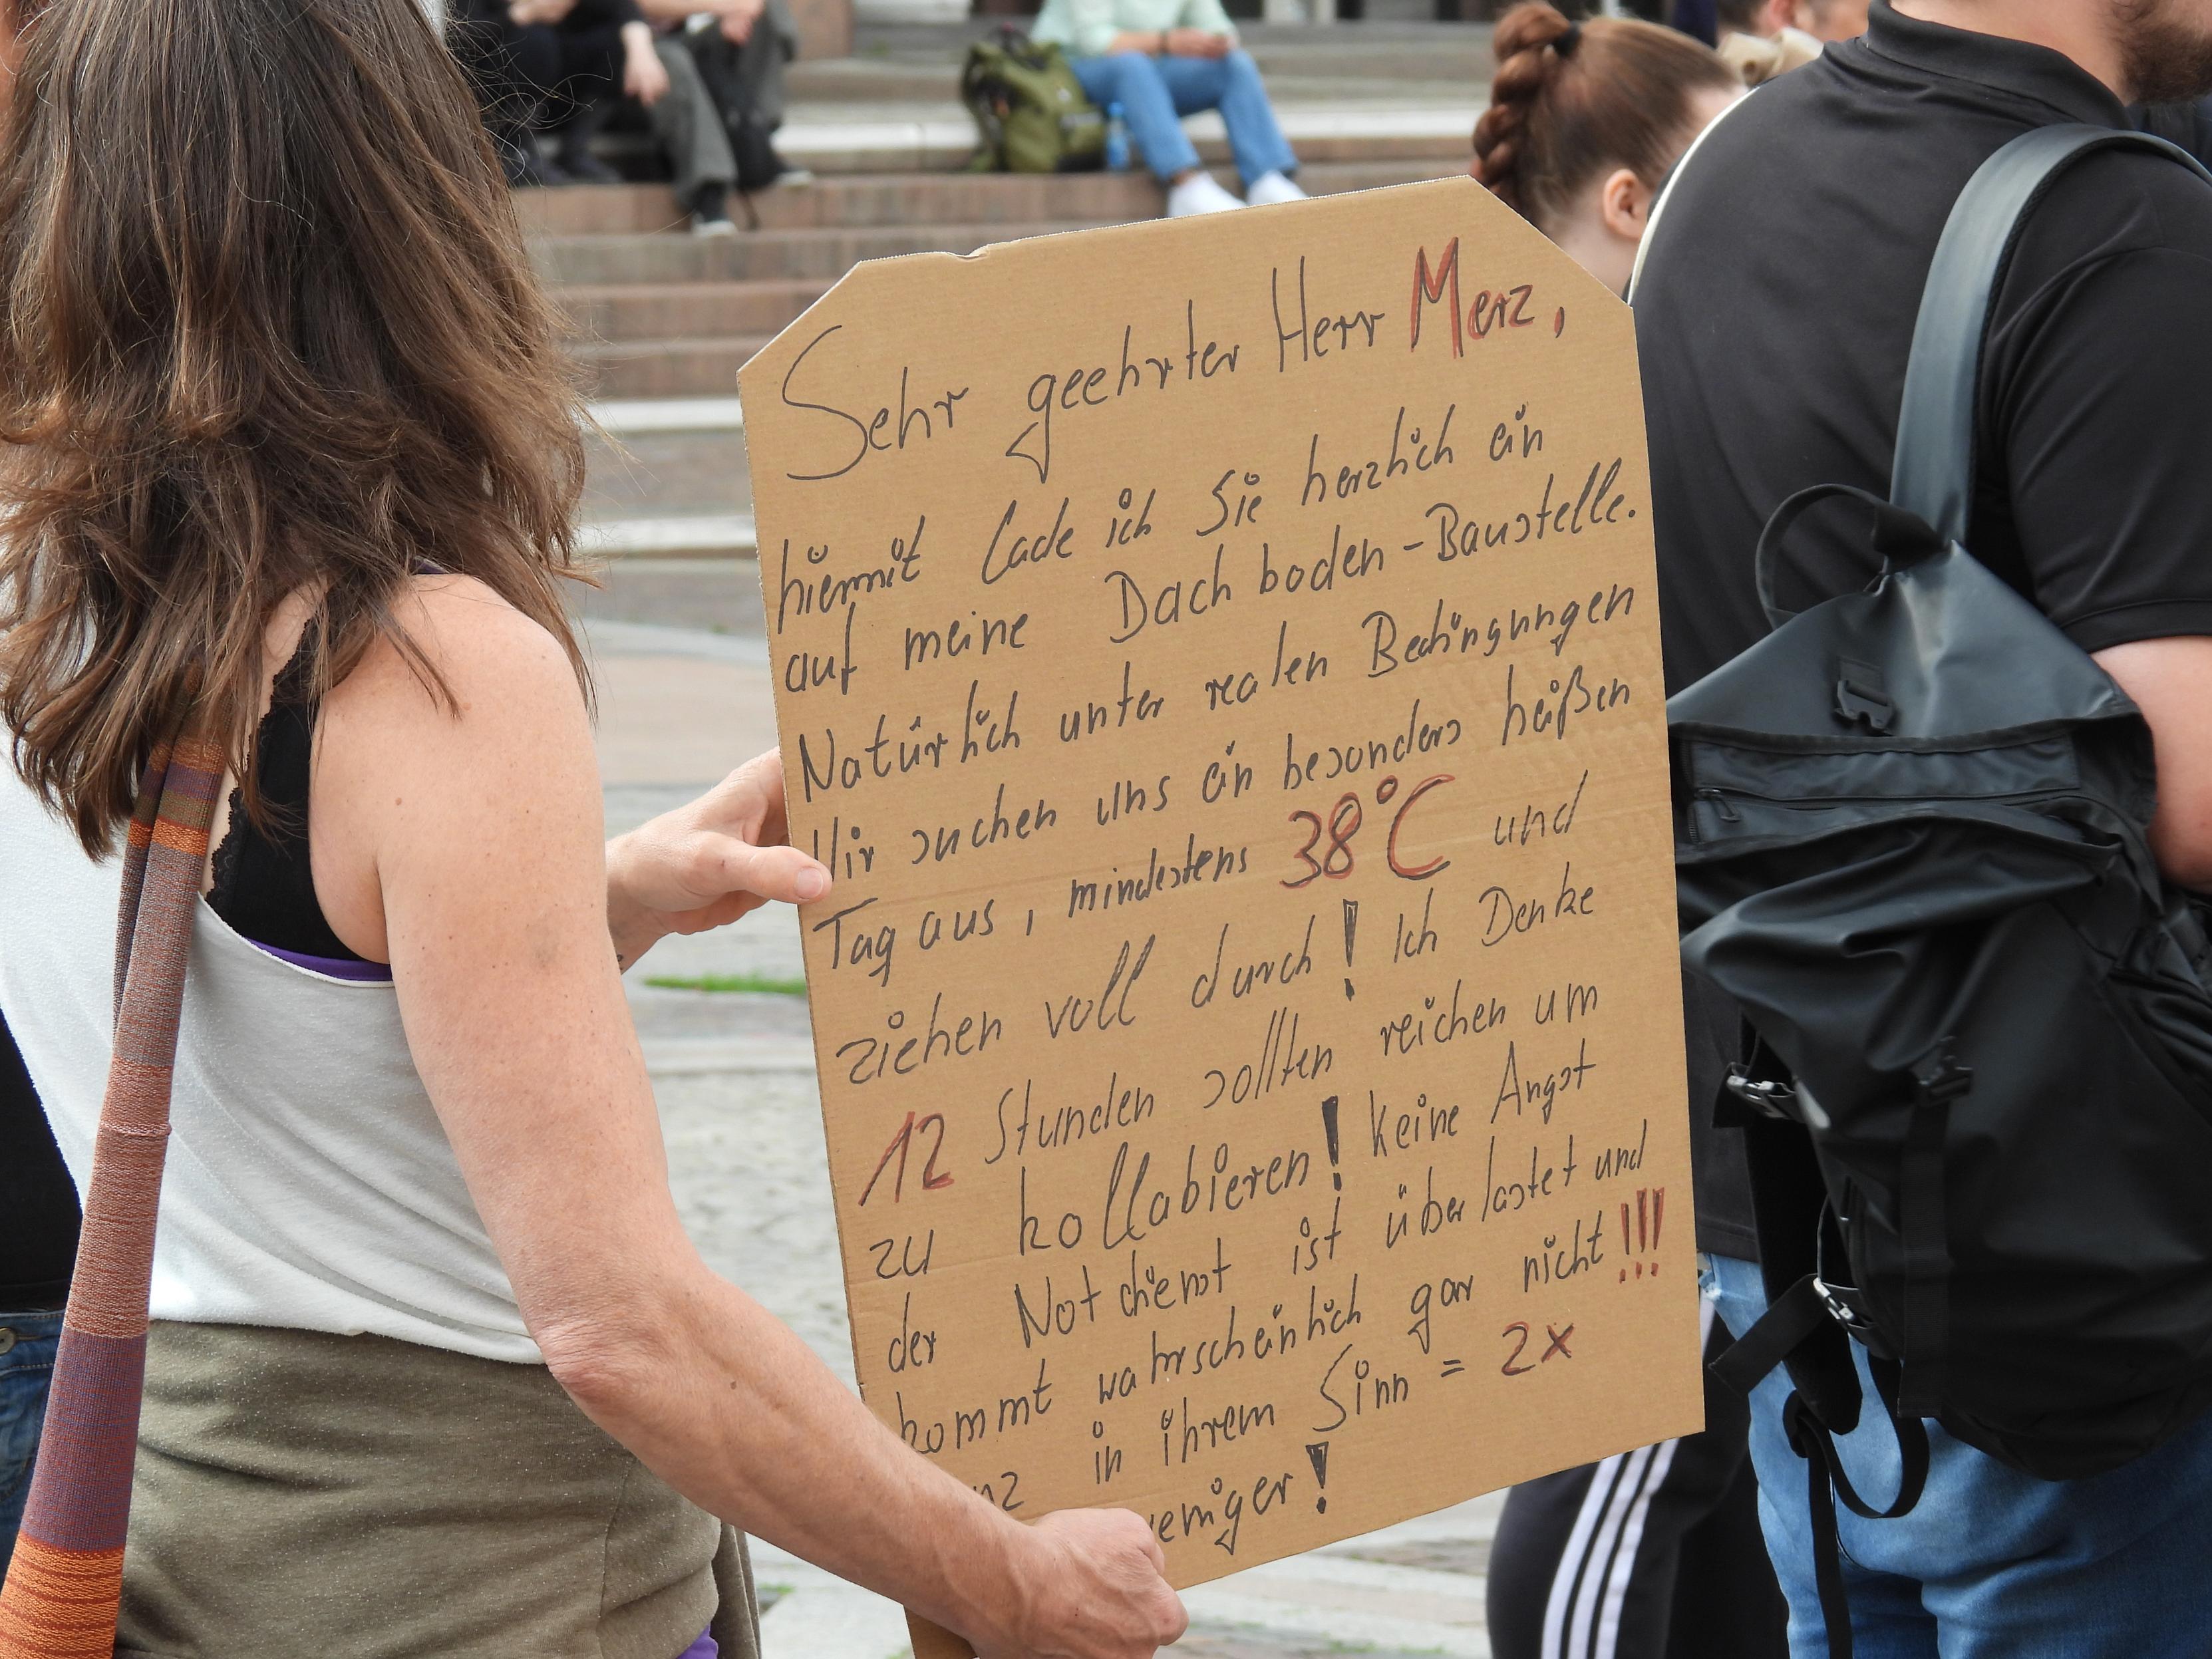 Sehr geehrter Herr Merz,
hiermit lade ich Sie herzlich ein
auf meine Dachboden-Baustelle.
Natürlich unter realen Bedingungen
Wir suchen uns ein besonders heißen
Tag aus, mindestens 38°C und
ziehen voll durch! Ich Denke
12 Stunden sollten reichen um
zu kollabieren! Keine Angst
der Notdienst ist überlastet und
kommt wahrscheinlich gar nicht!!!
in ihrem Sinn = 2x
weniger!